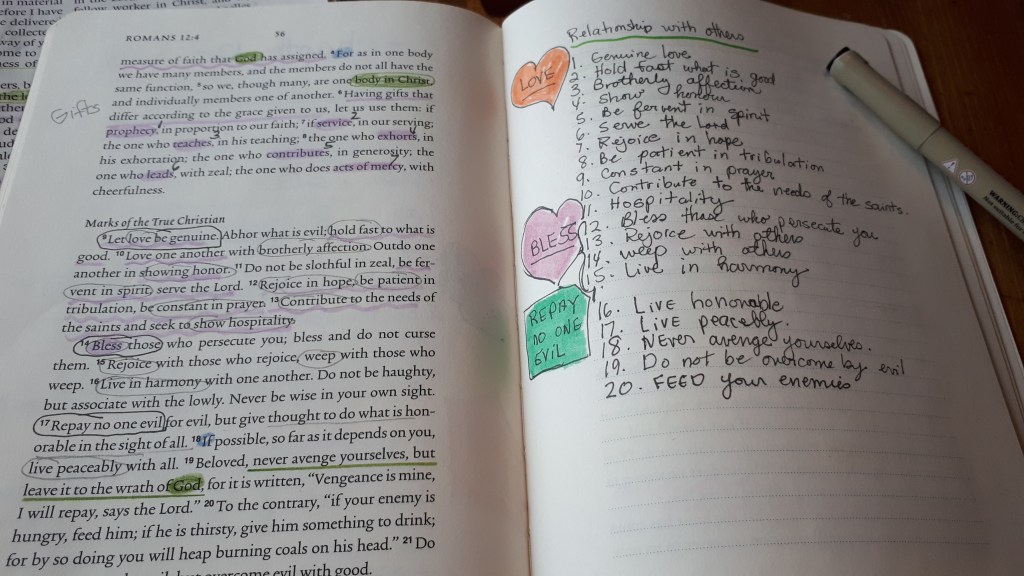 n material
efore I have
e delivere
collecte
way of y
ome to
ness of
in the
follow worker in Christ, and
ROMANS 12:4 56
measure of faith that God has assigned. 4For as in one body
we have many members, and the members do not all have the
same function, 5so we, though many, are one body in Christ,
and individually members one of another. 6Having gifts that
differ according to the grace given to us, let us use them: if
prophecy, in proportion to our faith; 7if service, in our serving;
the one who teaches, in his teaching; 8the one who exhorts, in
his exhortation; the one who contributes, in generosity; the
one who leads, with zeal; the one who does acts of mercy, with
cheerfulness.
Gifts
1
2
3
4
5
6
7
Marks of the True Christian
9Let love be genuine. Abhor what is evil; hold fast to what is
good. 10Love one another with brotherly affection. Outdo one
another in showing honor. 11Do not be slothful in zeal, be fer-
vent in spirit, serve the Lord. 12Rejoice in hope, be patient in
tribulation, be constant in prayer. 13Contribute to the needs of
the saints and seek to show hospitality.
14Bless those who persecute you; bless and do not curse
them. 15Rejoice with those who rejoice, weep with those who
weep. 16Live in harmony with one another. Do not be haughty,
but associate with the lowly. Never be wise in your own sight.
17Repay no one evil for evil, but give thought to do what is hon-
orable in the sight of all. 18If possible, so far as it depends on you,
live peaceably with all. 19Beloved, never avenge yourselves, but
leave it to the wrath of God, for it is written, “Vengeance is mine,
I will repay, says the Lord.” 20To the contrary, “if your enemy is
hungry, feed him; if he is thirsty, give him something to drink;
for by so doing you will heap burning coals on his head.” 21Do
overcome evil with good.
Relationship with others
LOVE
1. Genuine love
2. Hold fast what is good
3. Brotherly affection
4. Show honour
5. Be fervent in spirit
6. Serve the Lord
7. Rejoice in hope
8. Be patient in tribulation
9. Constant in prayer
10. Contribute to the needs of the saints.
11. Hospitality
BLESS
12. Bless those who persecute you
13. Rejoice with others
14. weep with others
15. Live in harmony
REPAY
NO ONE
EVIL
16. LIVE honorable
17. LIVE peacebly.
18. NEVER avenge yourselves.
19. Do not be overcome by evil
20. FEED your enemies
WARNING: